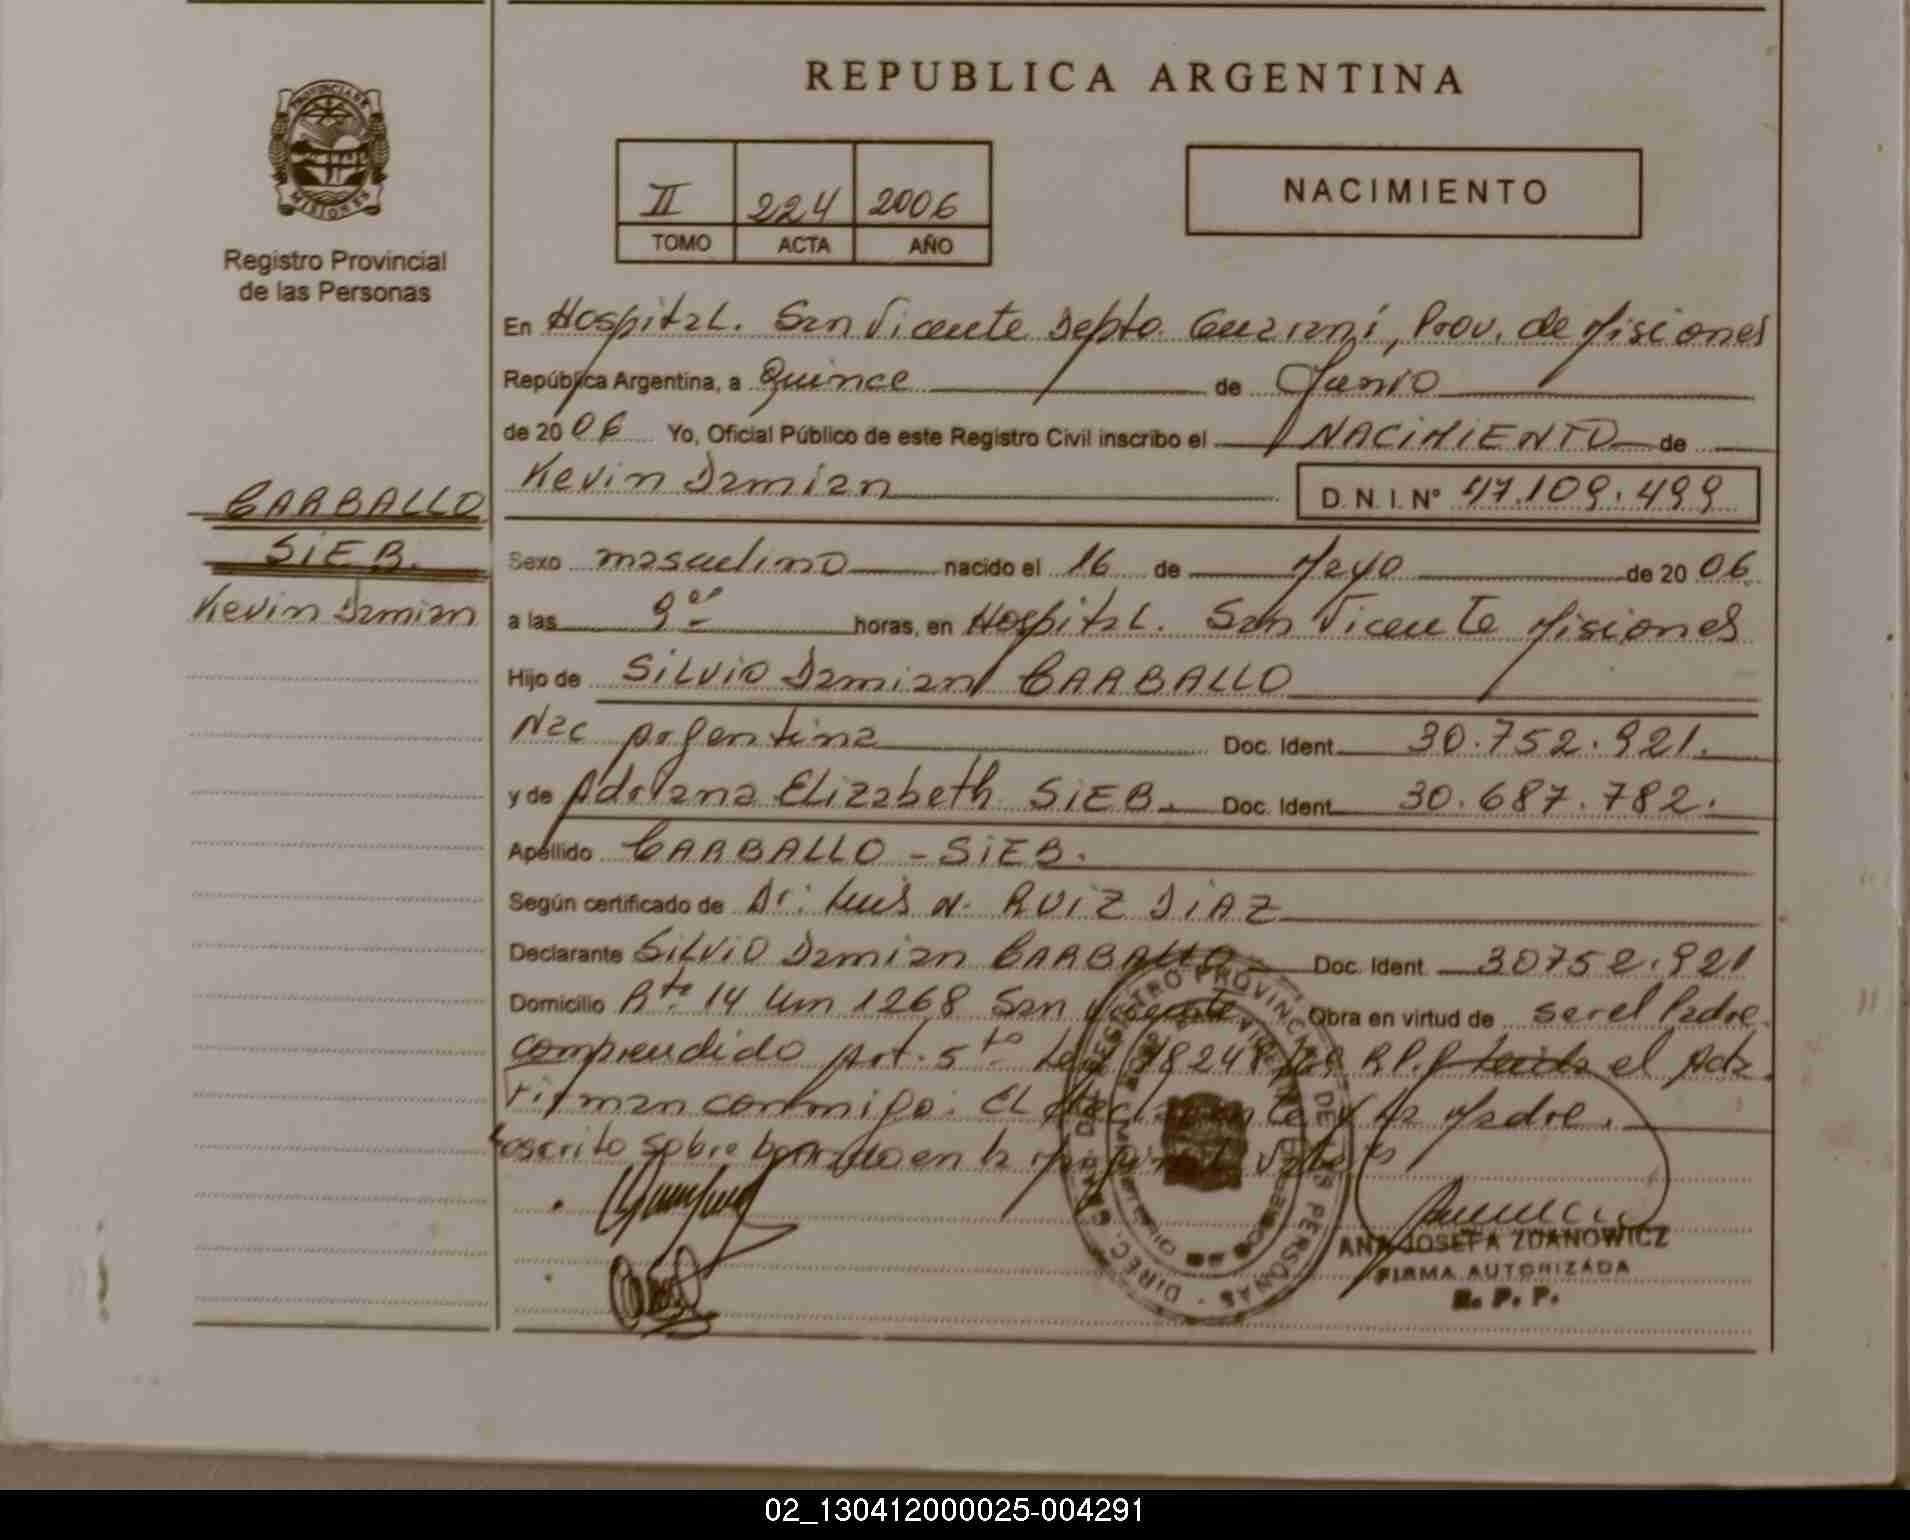 REPUBLICA ARGENTINA
PROVINCIA DE
MISIONES
Registro Provincial
de las Personas
II 224 2006
TOMO ACTA AÑO
NACIMIENTO
En Hospital. San Vicente Depto. Guaraní, Prov. de Misiones
República Argentina, a Quince de Junio
de 2006 Yo, Oficial Público de este Registro Civil inscribo el NACIMIENTO de
Kevin Damian D. N. I. Nº 47.109.499
CARBALLO
SIEB.
Kevin Damian
Sexo masculino nacido el 16 de Mayo de 2006
a las 9 horas, en Hospital. San Vicente Misiones
Hijo de Silvio Damian CARBALLO
Nac Argentina Doc. Ident. 30.752.921.
y de Adriana Elizabeth SIEB. Doc. Ident. 30.687.782.
Apellido CARBALLO - SIEB.
Según certificado de Dr: Luis N. RUIZ DIAZ
Declarante Silvio Damian CARBALLO Doc. Ident 30752.921
Domicilio Rta 14 Km 1268 San Vicente Obra en virtud de ser el Padre
comprendido Art. 5to Ley 18248 R.P.P. Leida el Acta
Firman conmigo: El declarante y la Madre.
escrito sobre borrado en la
DIREC. GRAL. DEL REGISTRO PROVINCIAL DE LAS PERSONAS
ANA JOSEFA ZDANOWICZ
FIRMA AUTORIZADA
R. P. P.
02_130412000025-004291